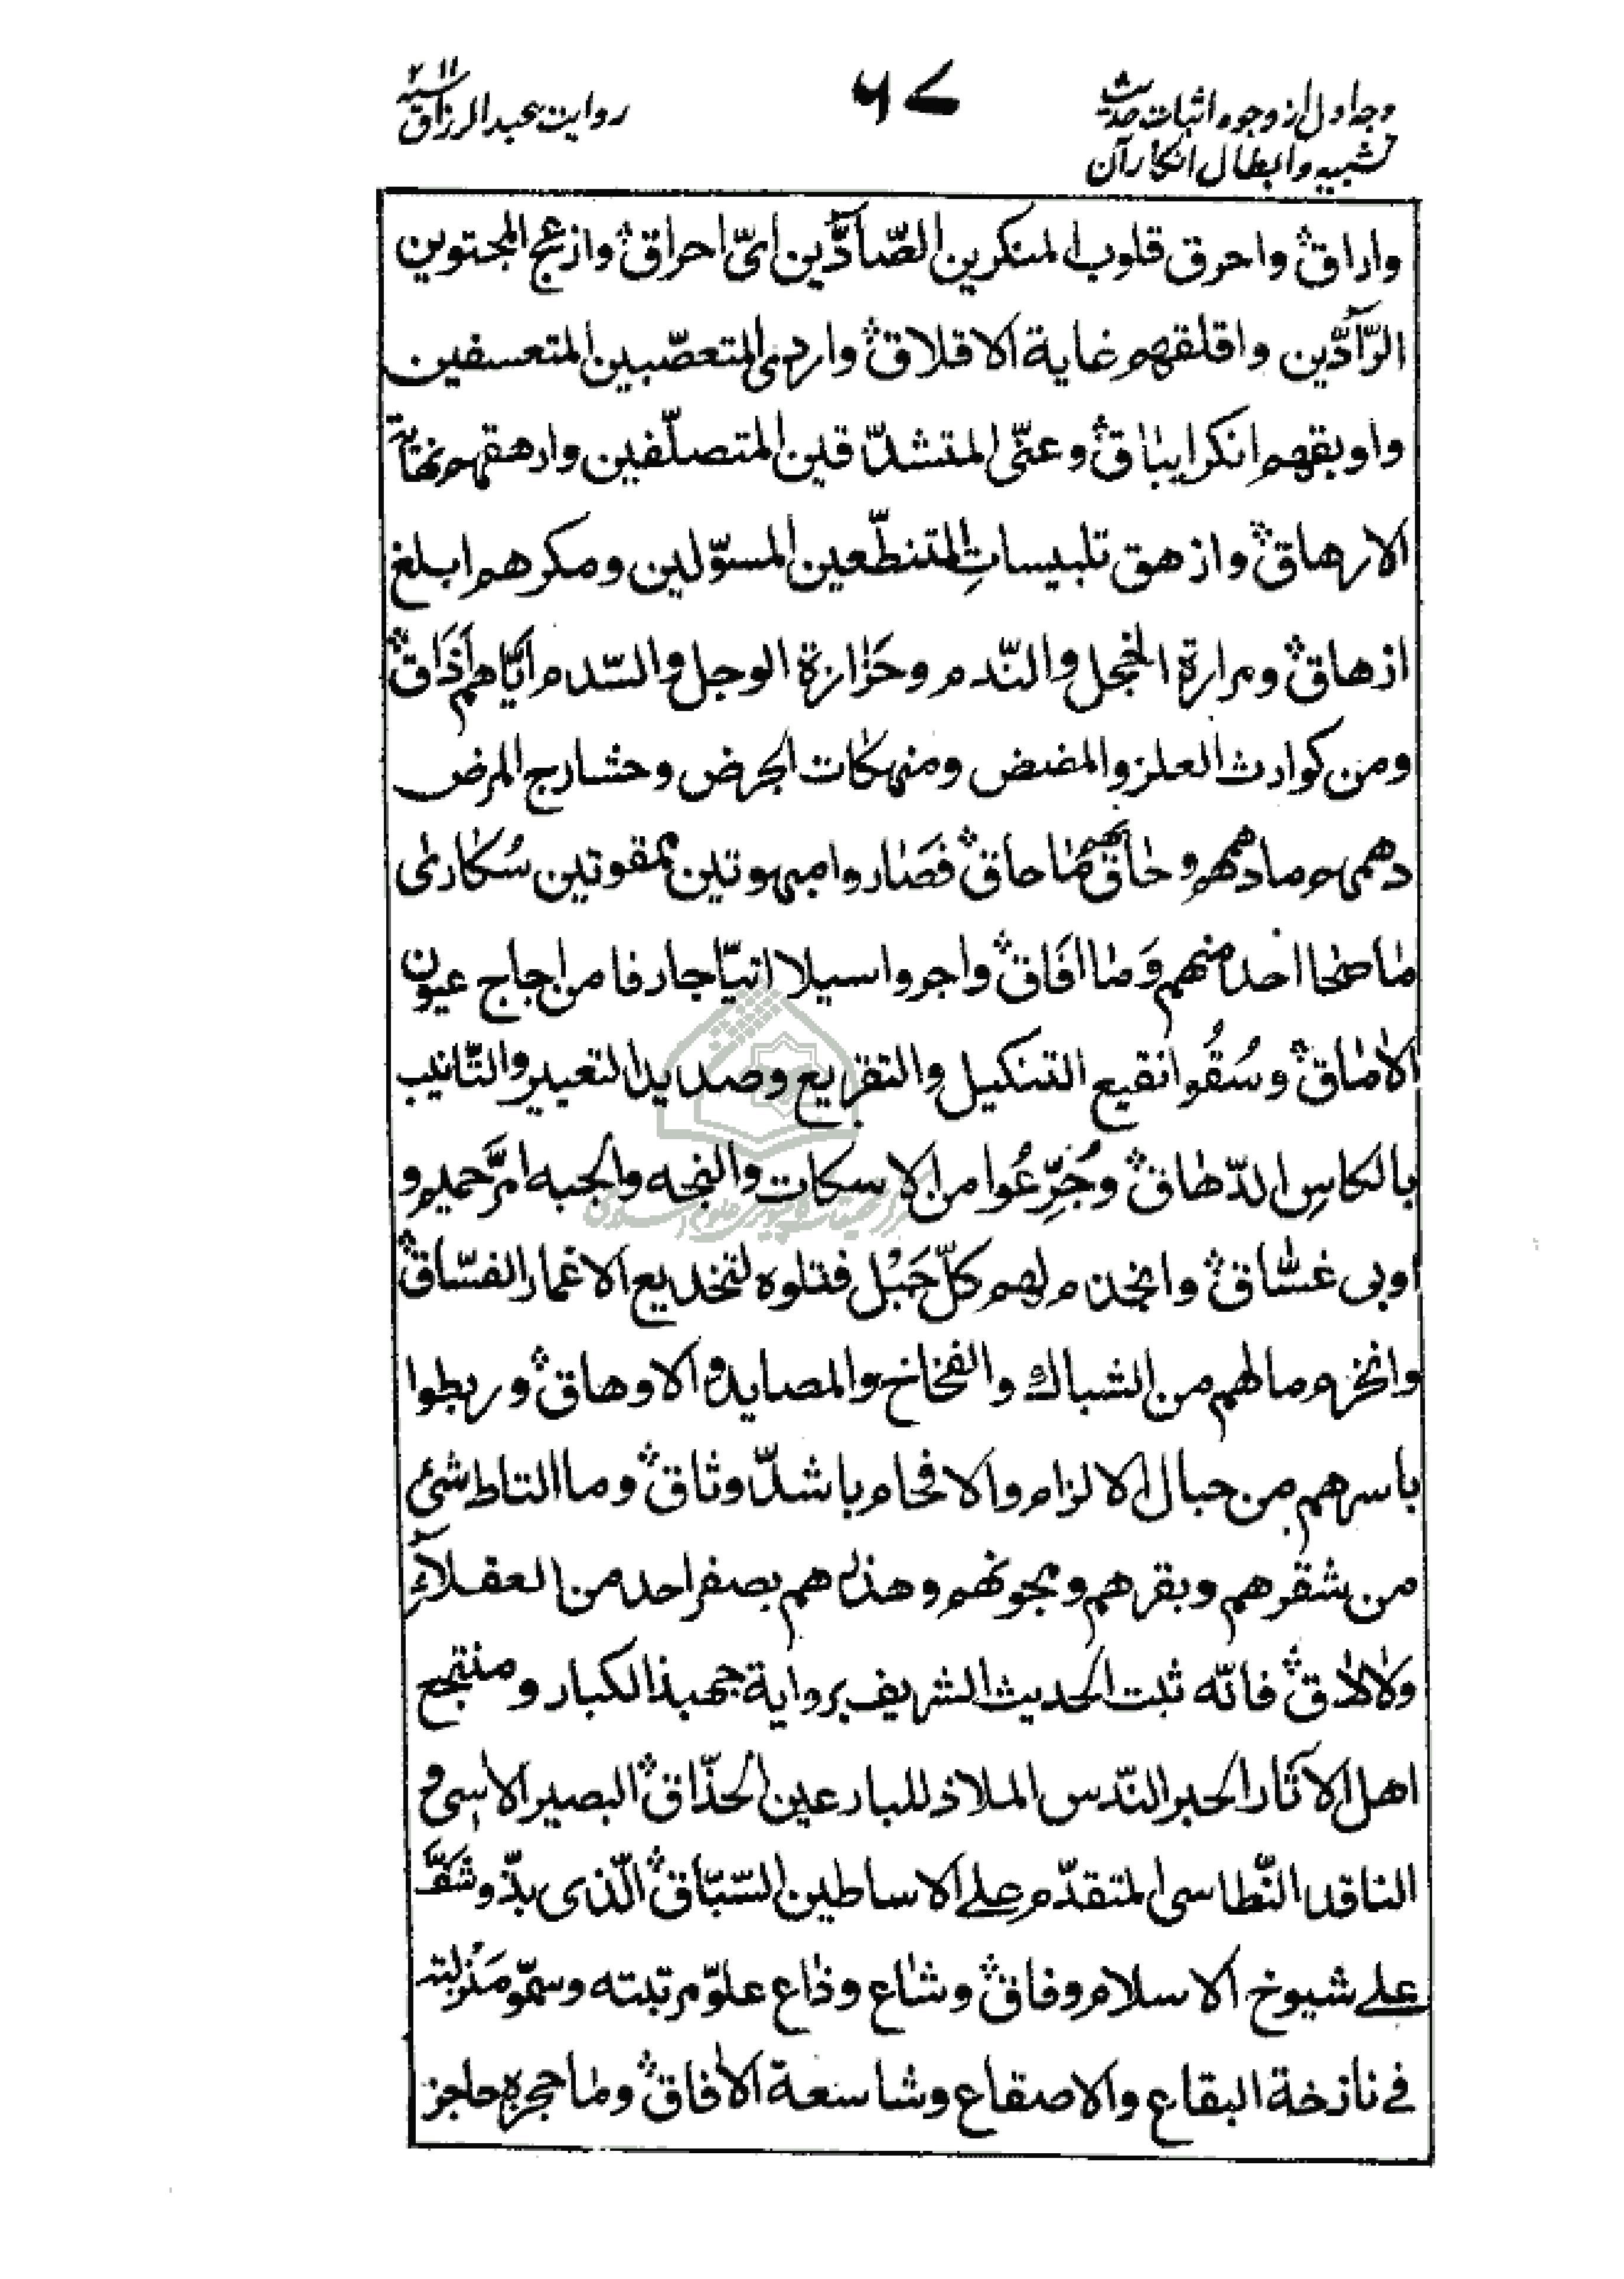 روایت عبد الرزاق سنه ۲۱۱
۶۷
وجه اول از وجوه اثبات حدیث
تشبیه و ابطال انکار آن
واراق واحرق قلوب المنكرين الصّادّين اىّ احراق وازعج المجتوين
الرّادّين واقلقهم غاية الاقلاق واردى المتعصّبين المتعسفين
واوبقهم انكر ايباق وعنّى المتشدّقين المتصلّفين وارهقهم نهاية
الارهاق وازهق تلبيساتِ المتنطّعين المسوّلين ومكرهم ابلغ
ازهاق ومرارة الخجل والنّدم وحَزازة الوجل والسّدم ايّاهم أذَاق
ومن كوارث العلز والمضض ومنهكات الجرض وحشارج المرض
دهمهم ما دهمهم وحاق بهم ما حاق فصَاروا مبهوتين ممقوتين سُكارى
ما صحا احد منهم وَما افَاق واجروا سيلا اتيّا جارفا من اجاج عيون
الاماق وسُقُوا نقيع التنكيل والتقريع وصديد التعيير والتّانيب
بالكاسِ الدّهاق وجُرِّعُوا من الاسكات والنجه والجبه امَرَّ حميم و
اوبى غسّاق وانجذم لهم كلّ حَبْل فتلوه لتخديع الاغمار الفسّاق
وانخرم ما لهم من الشباك والفخاخ والمصايد والاوهاق وربطوا
باسرهم من حبال الالزام والافحام باشدّ وثاق وما التاط شئ
من شقرهم وبقرهم ومجونهم وهذاهم بصفر احد من العقلآء
ولا لاق فانّه ثبت الحديث الشريف برواية جهبذ الكبار ومنتجع
اهل الآثار الحبر النّدس الملاذ للبارعين الحذّاق البصير الاسى و
الناقد النّطاسى المتقدّم على الاساطين السّبّاق الّذى بذّ وشَفَّ
على شيوخ الاسلام وفاق وشاع وذاع علوّ مرتبته وسموّ مَنزلته
فى نازخة البقاع والاصقاع وشاسعة الآفاق وما حجره حاجز